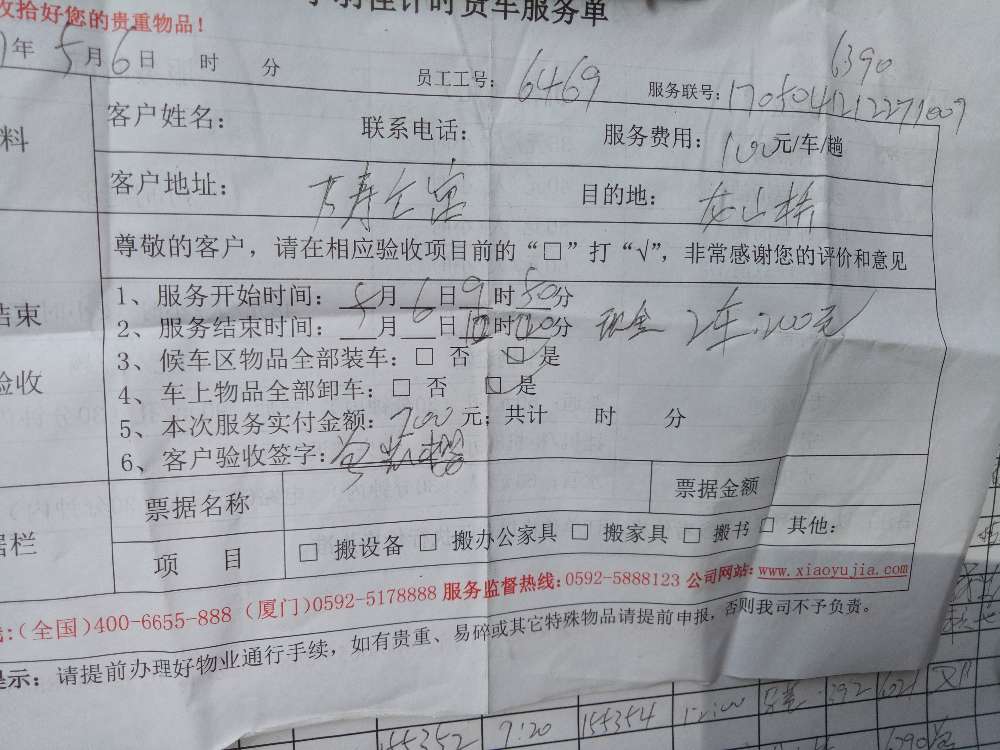 收拾好您的贵重物品！
小羽佳计时货车服务单
年 5月6日 时 分 员工工号：6469 服务联号：1705041212271007
6390
料
客户姓名： 联系电话： 服务费用：100元/车/趟
客户地址：万寿 目的地：龙山桥
尊敬的客户，请在相应验收项目前的“□”打“√”，非常感谢您的评价和意见
结束
验收
1、服务开始时间：5月6日9时50分
2、服务结束时间：5月6日 时 分 现金 2车：200元
3、候车区物品全部装车：□ 否 □ 是
4、车上物品全部卸车：□ 否 □ 是
5、本次服务实付金额：200元；共计 时 分
6、客户验收签字：
据栏
票据名称 票据金额
项 目 □ 搬设备 □ 搬办公家具 □ 搬家具 □ 搬书 □ 其他：
：（全国）400-6655-888（厦门）0592-5178888 服务监督热线：0592-5888123 公司网站：www.xiaoyujia.com
提示：请提前办理好物业通行手续，如有贵重、易碎或其它特殊物品请提前申报，否则我司不予负责。
155352 9:20 155354 12:00 392 1021